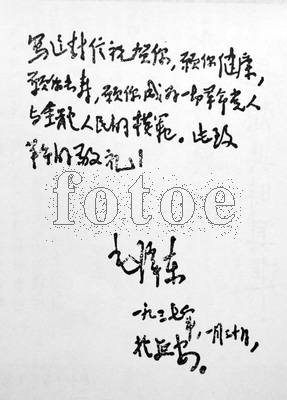 写这封信祝贺你，愿你健康，
愿你长寿，愿你成为一切革命党人
与全体人民的模范。此致
革命的敬礼！
fotoe
毛泽东
一九三七年，一月三十日，
于延安。